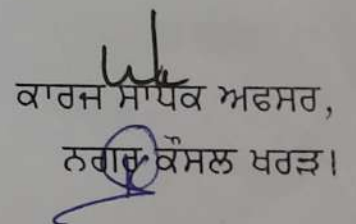 ਕਾਰਜ ਸਾਧਕ ਅਫਸਰ,
ਨਗਰ ਕੌਸਲ ਖਰੜ।